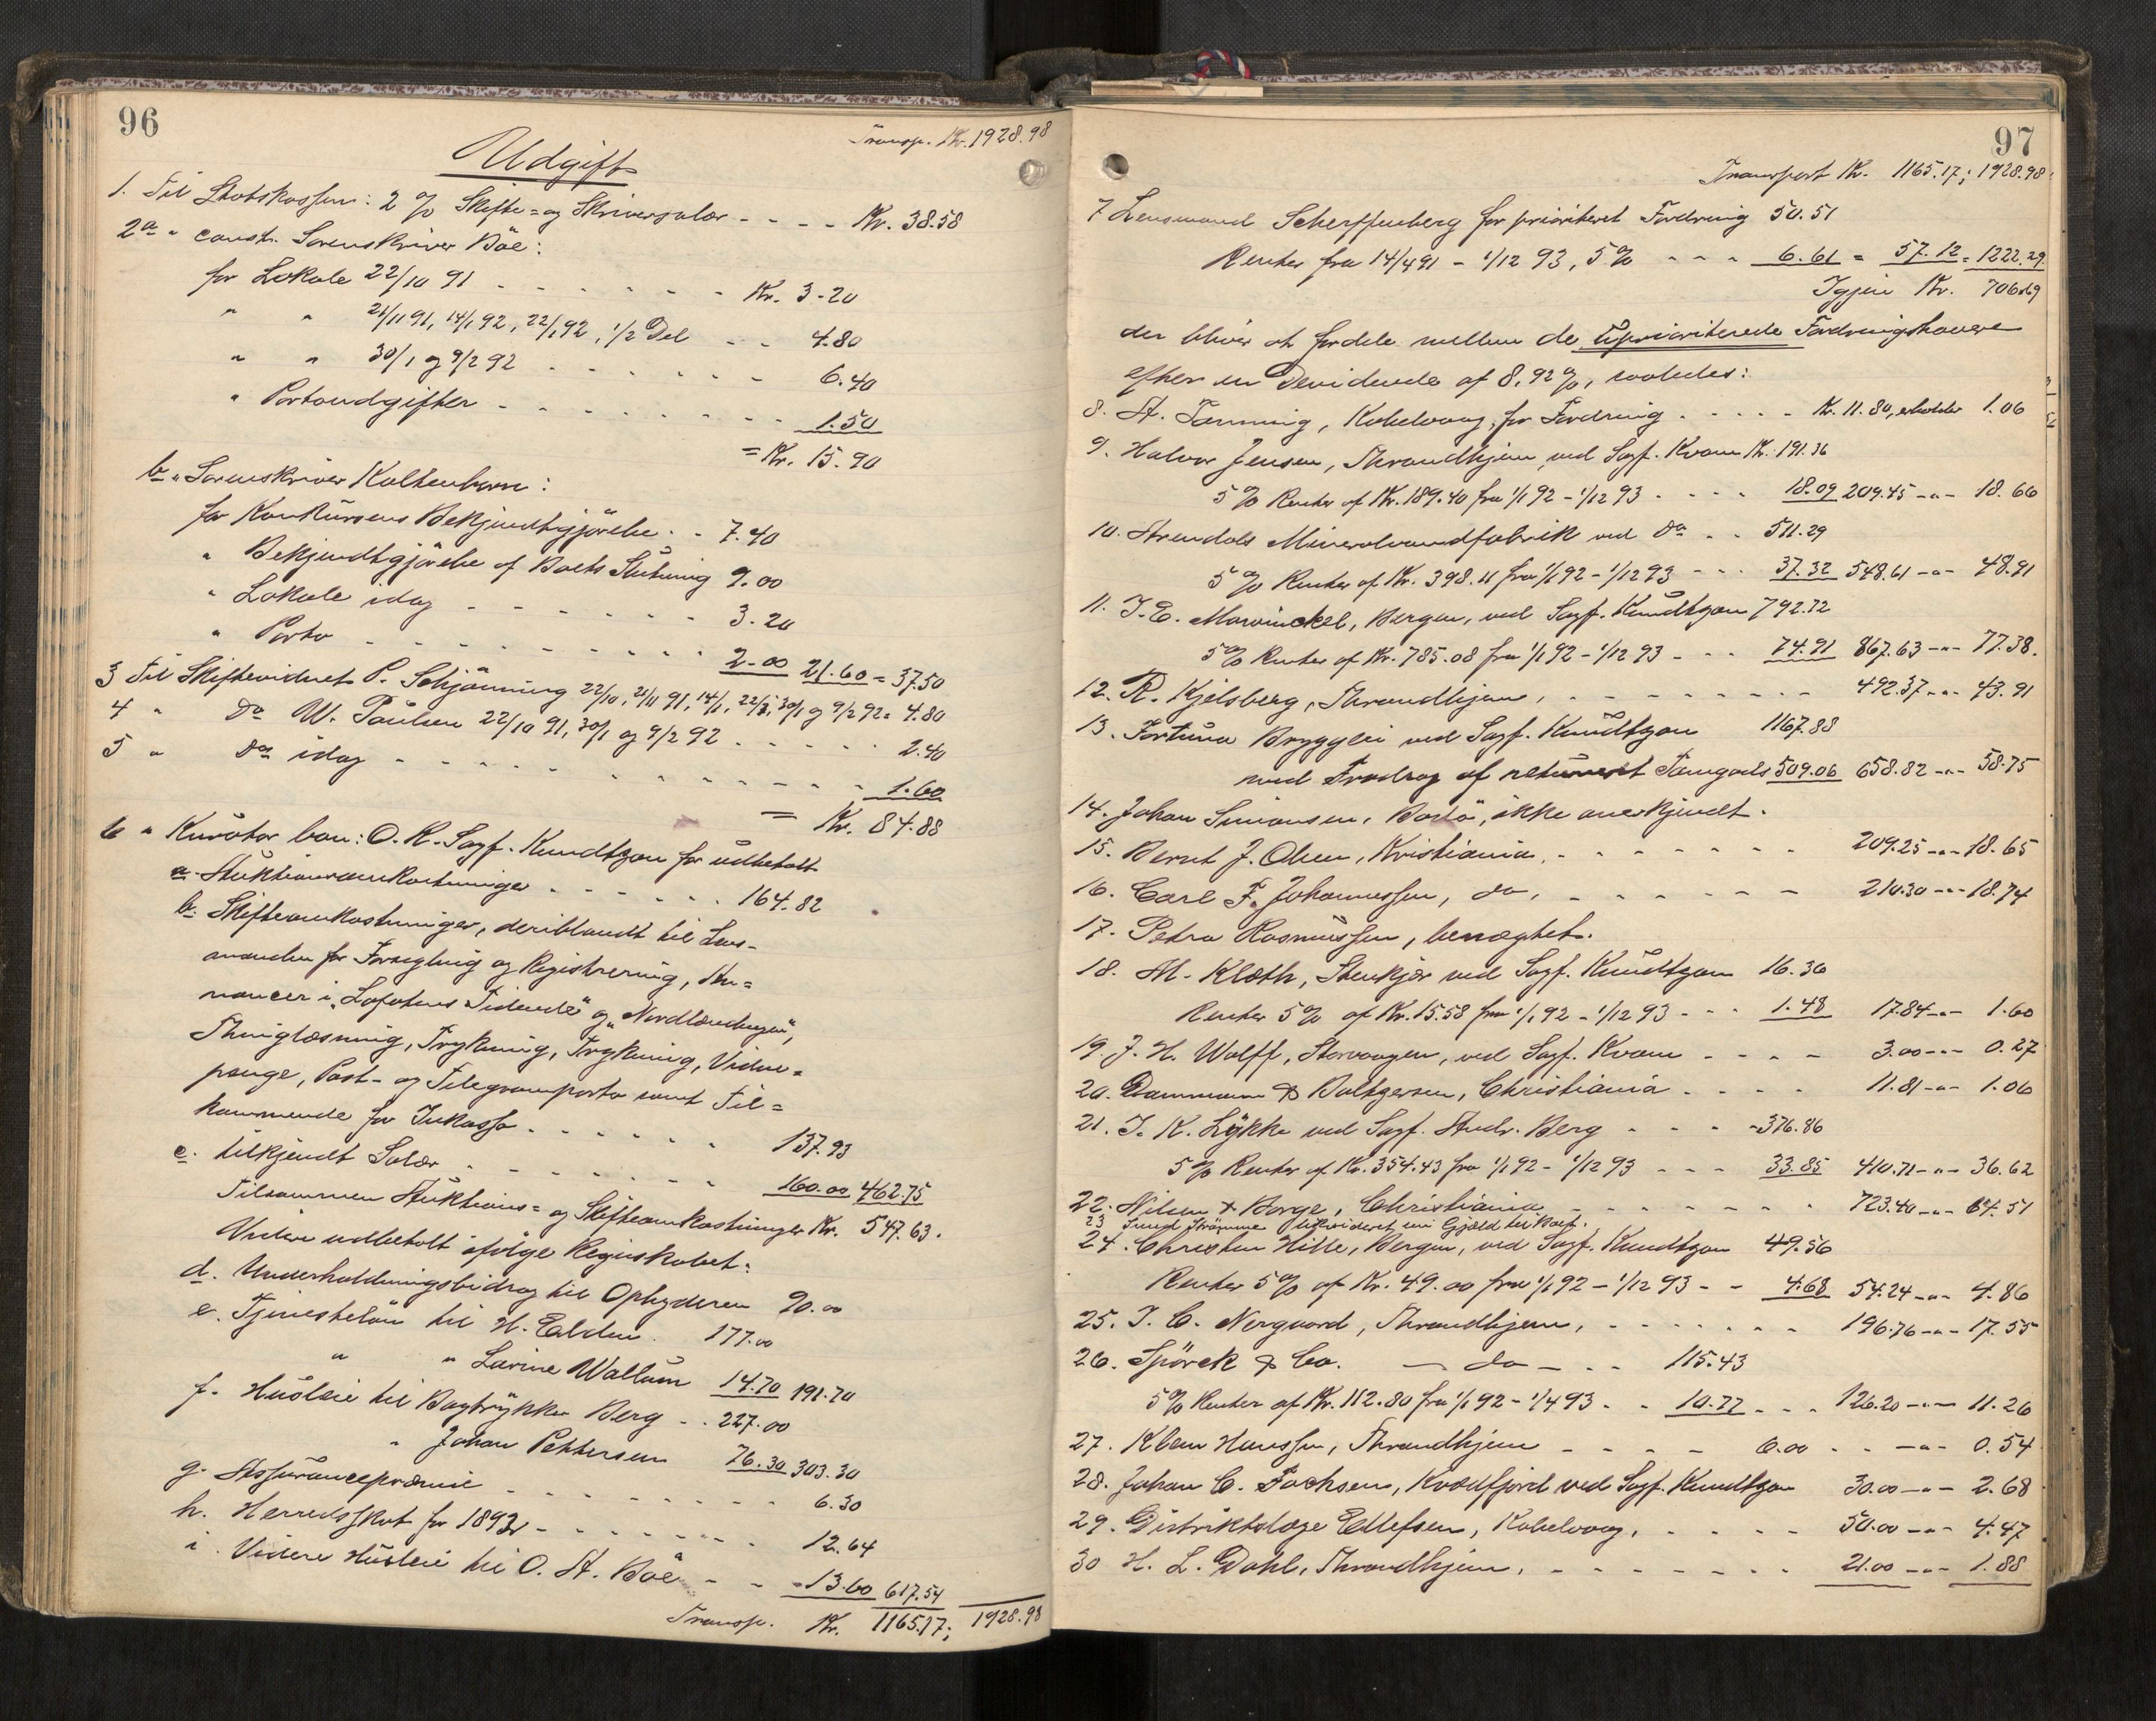 96
Transp. Kr. 1928.98
Udgift
1. Til Statskassen: 2 % Skifte- og Skriversalær - - - - Kr. 38.58
2a " const. Sorenskriver Böe:
for Lokale 22/10 91 - - - - - - Kr. 3.20
" " 21/11 91, 14/1 92, 22/1 92, 1/2 Del - - 4.80
" " 30/1 og 9/2 92 - - - - - - 6.40
" Portoudgifter - - - - - - - - 1.50
= Kr. 15.90
b " Sorenskriver Koltenborn:
for Konkursens Bekjendtgjörelse - - 7.40
" Bekjendtgjörelse af Boets Slutning 9.00
" Lokale idag - - - - - - 3.20
" Porto - - - - - - - - - 2.00 21.60 = 37.50
3 Til Skiftevidnet P. Schjönning 22/10, 21/11 91, 14/1, 22/1, 30/1 og 9/2 92 = 4.80
4 " do W. Paulsen 22/10 91, 30/1 og 9/2 92 - - - - - 2.40
5 " do idag - - - - - - - - - - - 1.60
= Kr. 84.88
6 " Kurator bon: O. R. Sagf. Knudtzon for udbetalt
a. Auktionsomkostninger - - - - - 164.82
b. Skifteomkostninger, deriblandt til Lens-
manden for Forsegling og Registrering, An=
noncer i "Lofotens Tidende" og "Nordlændingen",
Thinglæsning, Trykning, Trykning, Vidne=
penge, Post- og Telegramporto samt Til=
kommende for Inkasso - - - - - - 137.93
c. tilkjendt Salær - - - - - - - 160.00 462.75
Tilsammen Auktions= og Skifteomkostninger Kr. 547.63.
Videre udbetalt ifölge Regnskabet:
d. Underholdningsbidrag til Opbyderen 90.00
e. Tjenestelön til H. Elden 177.00
" " Lavine Wallum 14.70 191.70
f. Husleie til Bogtrykker Berg - - 227.00
" Johan Pettersen 76.30 303.30
g. Assurancepræmie - - - - - - - - 6.30
h. Herredsskat for 1892 - - - - - - 12.64
i. Videre Husleie til O. A. Böe - - - 13.60 617.54
Transp. Kr. 1165.17; 1928.98
97
Transport Kr. 1165.17; 1928.98
7 Lensmand Scherffenberg for prioriteret Fordring 50.51
Renter fra 14/4 91 - 1/12 93, 5 % - - - 6.61 = 57.12 = 1222.29
Igjen Kr. 706.69
der bliver at fordele mellem de Uprioriterede Fordringshavere
efter en Devidende af 8,92 %, saaledes:
8. A. Tanning, Kabelvaag, for Fordring - - - - - Kr. 11.80, erholder 1.06
9. Halvor Jensen, Throndhjem ved Sagf. Kvam Kr. 191.36
5 % Renter af Kr. 189.40 fra 1/1 92 - 1/12 93 - - - - 18.09 209.45 -"- 18.66
10. Arendals Mineralvandfabrik ved do - - 511.29
5 % Renter af Kr. 398.11 fra 1/1 92 - 1/12 93 - - - 37.32 548.61 -"- 48.91
11. J. E. Mowinckel, Bergen, ved Sagf. Knudtzon 792.72
5 % Renter af Kr. 785.08 fra 1/1 92 - 1/12 93 - - - 74.91 867.63 -"- 77.38.
12. R. Kjelsberg, Throndhjem, - - - - - - - - - 492.37 -"- 43.91
13. Fortuna Bryggeri ved Sagf. Knudtzon 1167.88
med Fradrag af returneret Tomgods 509.06 658.82 -"- 58.75
14. Johan Simonsen, Bodö, ikke anerkjendt.
15. Bernt J. Olsen, Kristiania, - - - - - - - 209.25 -"- 18.65
16. Carl F. Johannessen, do, - - - - - - 210.30 -"- 18.74
17. Petra Rasmussen, benægtet.
18. M. Klæth, Stenkjær ved Sagf. Knudtzon 16.36
Renter 5 % af Kr. 15.58 fra 1/1 92 - 1/12 93 - - - 1.48 17.84 -"- 1.60
19. J. H. Wolff, Storvaagen, ved Sagf. Kvam - - - - 3.00 -"- 0.27
20. Dammann & Boltzersen, Christiania - - - - 11.81 -"- 1.06
21. J. K. Lykke ved Sagf. Andr. Berg - - - - 376.86
5 % Renter af Kr. 354.43 fra 1/1 92 - 1/12 93 - - - 33.85 410.71 -"- 36.62
22. Nilsen & Borge, Christiania - - - - - - - 723.40 -"- 64.51
23 Lund Strömme likvideret sin Gjæld til Boet.
24. Christen Hille, Bergen, ved Sagf. Knudtzon 49.56
Renter 5 % af Kr. 49.00 fra 1/1 92 - 1/12 93 - - 4.68 54.24 -"- 4.86
25. J. C. Norgaard, Throndhjem, - - - - - - - 196.76 -"- 17.55
26. Spörck & Co. - do - - - 115.43
5 % Renter af Kr. 112.80 fra 1/1 92 - 1/4 93 - - 10.77 - - - 126.20 -"- 11.26
27. Klaus Hanssen, Throndhjem - - - - 6.00 - - -"- 0.54
28. Johan C. Fochsen, Kvædfjord ved Sagf. Knudtzon 30.00 -"- 2.68
29. Distriktslæge Ellefsen, Kabelvaag, - - - - - 50.00 -"- 4.47
30 H. L. Dahl, Throndhjem, - - - - - - - 21.00 -"- 1.88